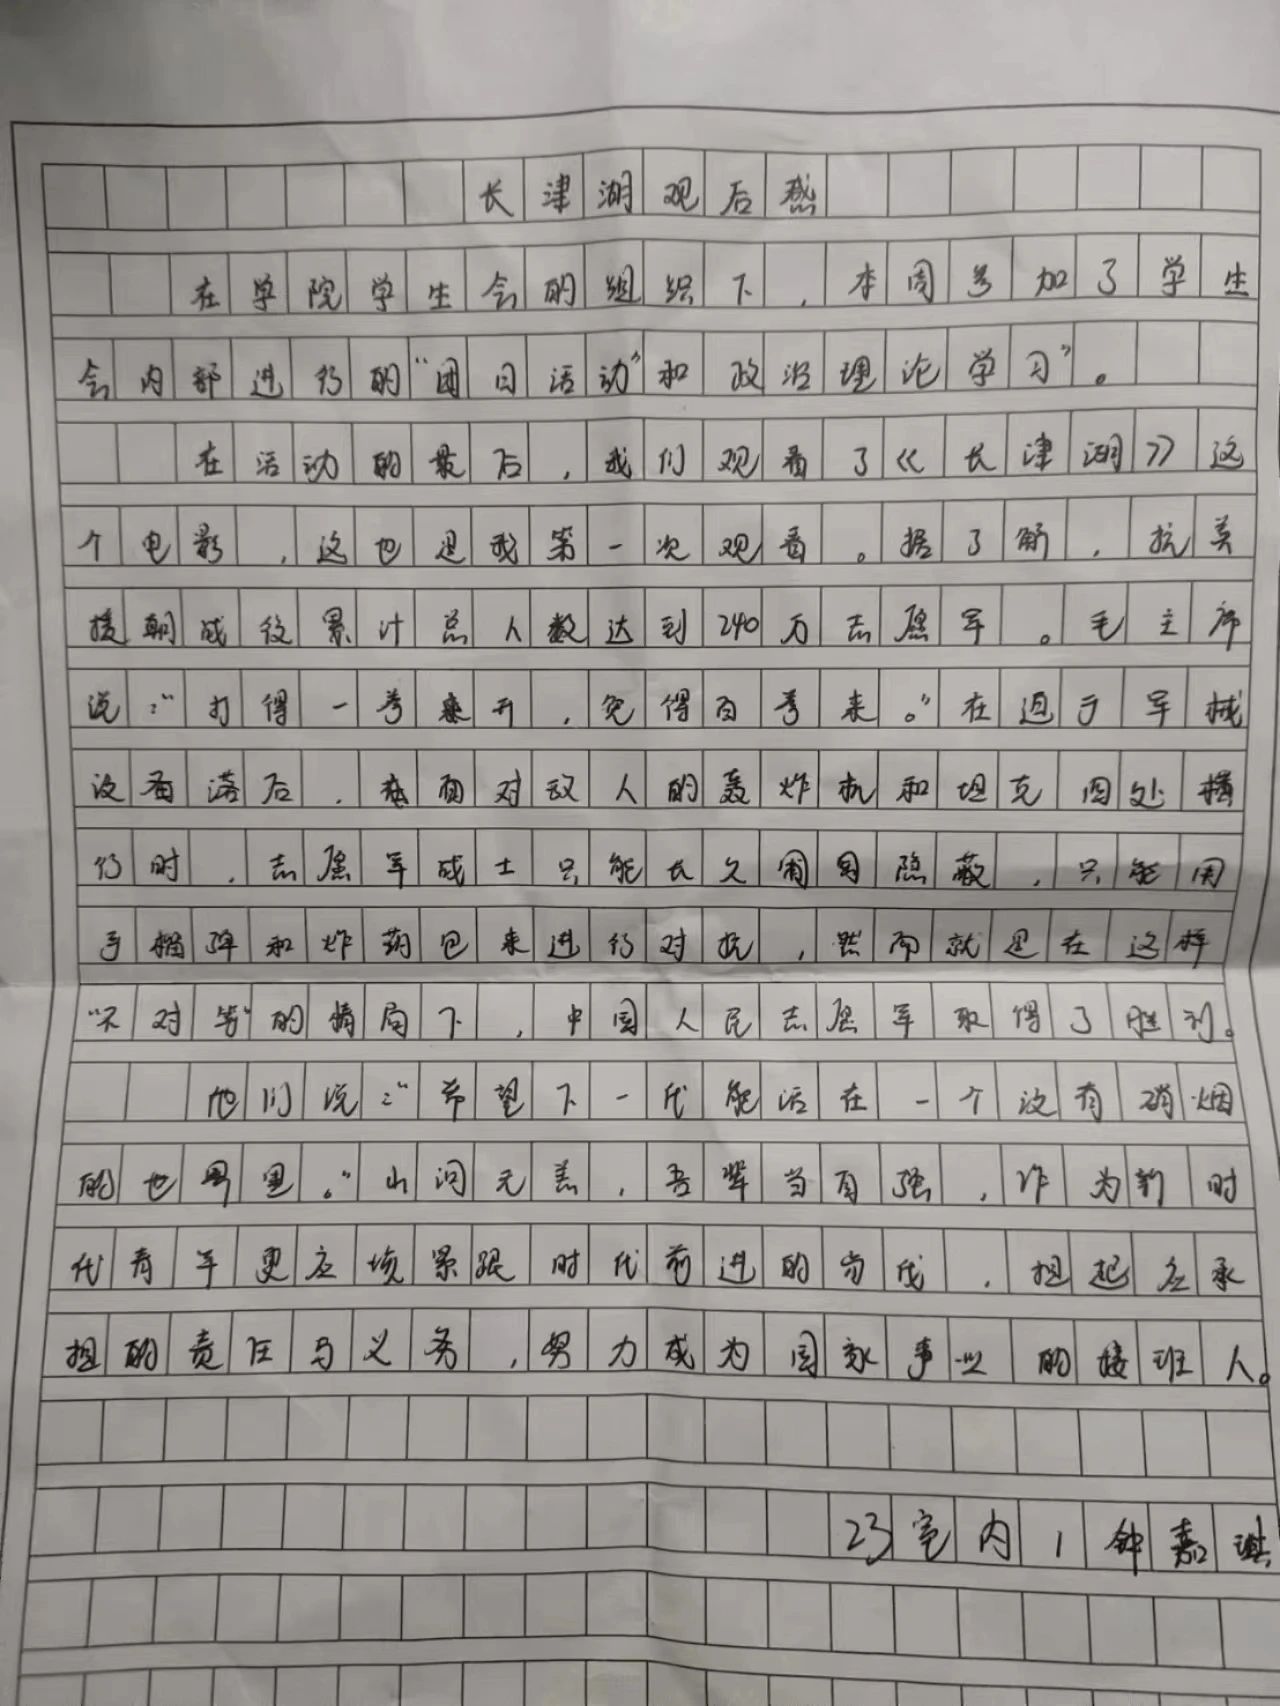 长津湖观后感
在学院学生会的组织下，本周参加了学生
会内部进行的“团日活动”和政治理论学习”。
在活动的最后，我们观看了《长津湖》这
个电影，这也是我第一次观看。据了解，抗美
援朝战役累计总人数达到240万志愿军。毛主席
说：“打得一拳来开，免得百拳来。”在迫于军械
设备落后，在面对敌人的轰炸机和坦克四处横
行时，志愿军战士只能长久匍匐隐蔽，只能用
手榴弹和炸药包来进行对抗，然而就是在这样
“不对等”的情局下，中国人民志愿军取得了胜利。
他们说：“希望下一代能活在一个没有硝烟
的世界里。”山河无恙，吾辈当自强，作为新时
代青年更应该紧跟时代前进的步伐，担起应承
担的责任与义务，努力成为国家事业的接班人。
23室内1钟嘉琪